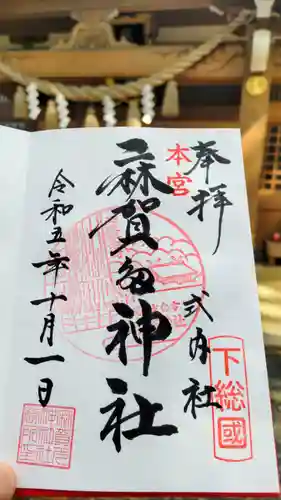 奉拝
本宮
下総國
式内社
麻賀多神社
令和五年十月一日